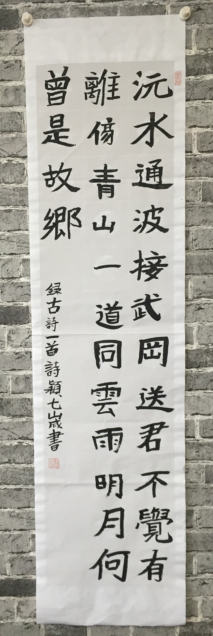 沅水通波接武岡送君不覺有
離傷青山一道同雲雨明月何
曾是故鄉
録古詩一首詩穎七歲書